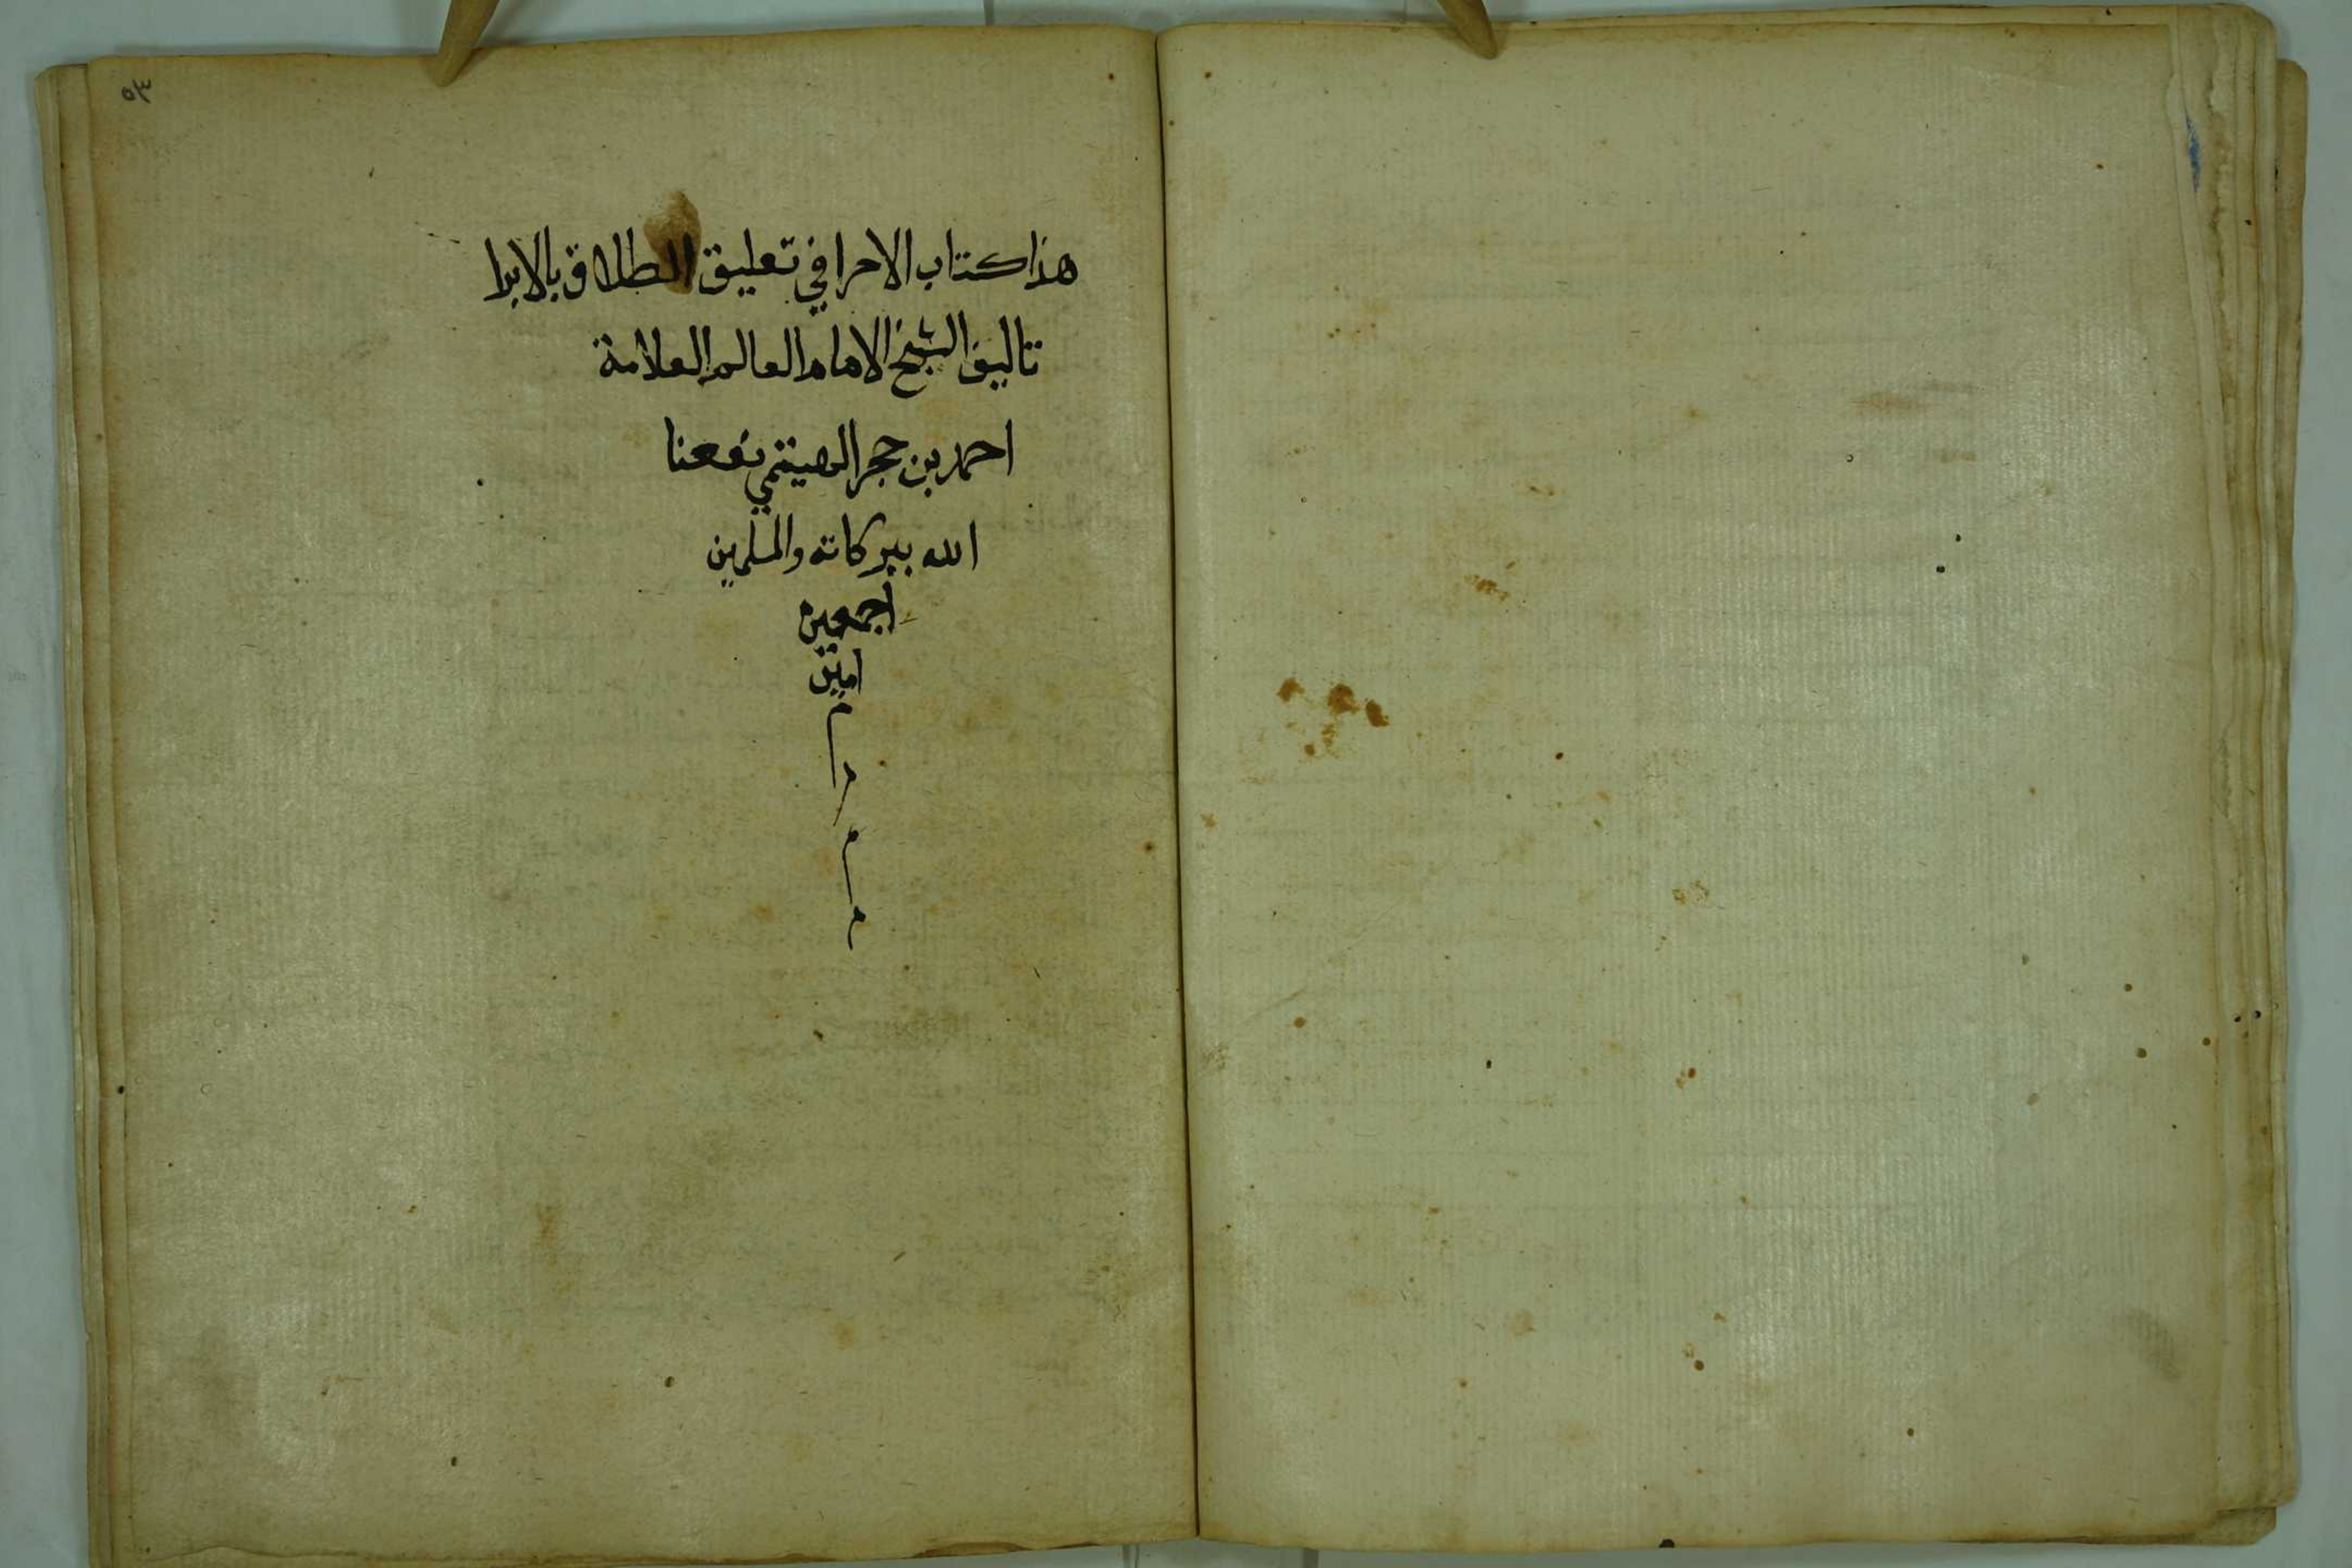 ٥٣
هذا كتاب الاحرا في تعليق الطلاق بالابرا
تاليف الشيخ الامام العالم العلامة
احمد بن حجر الهيتمي نفعنا
الله ببركاته والمسلمين
اجمعين
امين